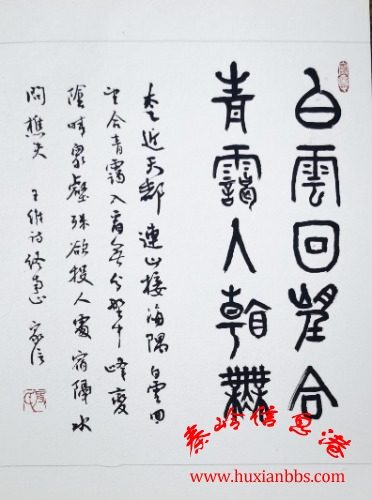 白雲回望合
青靄入看無
太乙近天都連山接海隅白雲回
望合青靄入看無分野中峰變
陰晴眾壑殊欲投人處宿隔水
問樵夫 王維詩
秦岭信息港
www.huxianbbs.com